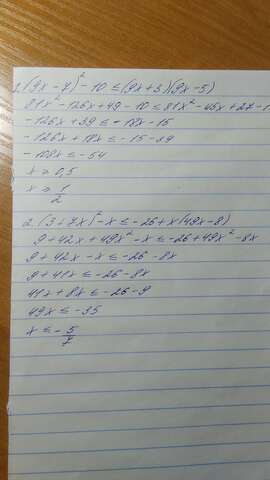 1. (9x - 7)² - 10 ≤ (9x + 3)(9x - 5)
81x² - 126x + 49 - 10 ≤ 81x² - 45x + 27
-126x + 39 ≤ -18x - 15
-126x + 18x ≤ -15 - 39
-108x ≤ -54
x ≥ 0,5
x ≥ 1/2
2. (3 + 7x)² - x ≤ -26 + x(49x - 8)
9 + 42x + 49x² - x ≤ -26 + 49x² - 8x
9 + 42x - x ≤ -26 - 8x
9 + 41x ≤ -26 - 8x
41x + 8x ≤ -26 - 9
49x ≤ -35
x ≤ - 5/7